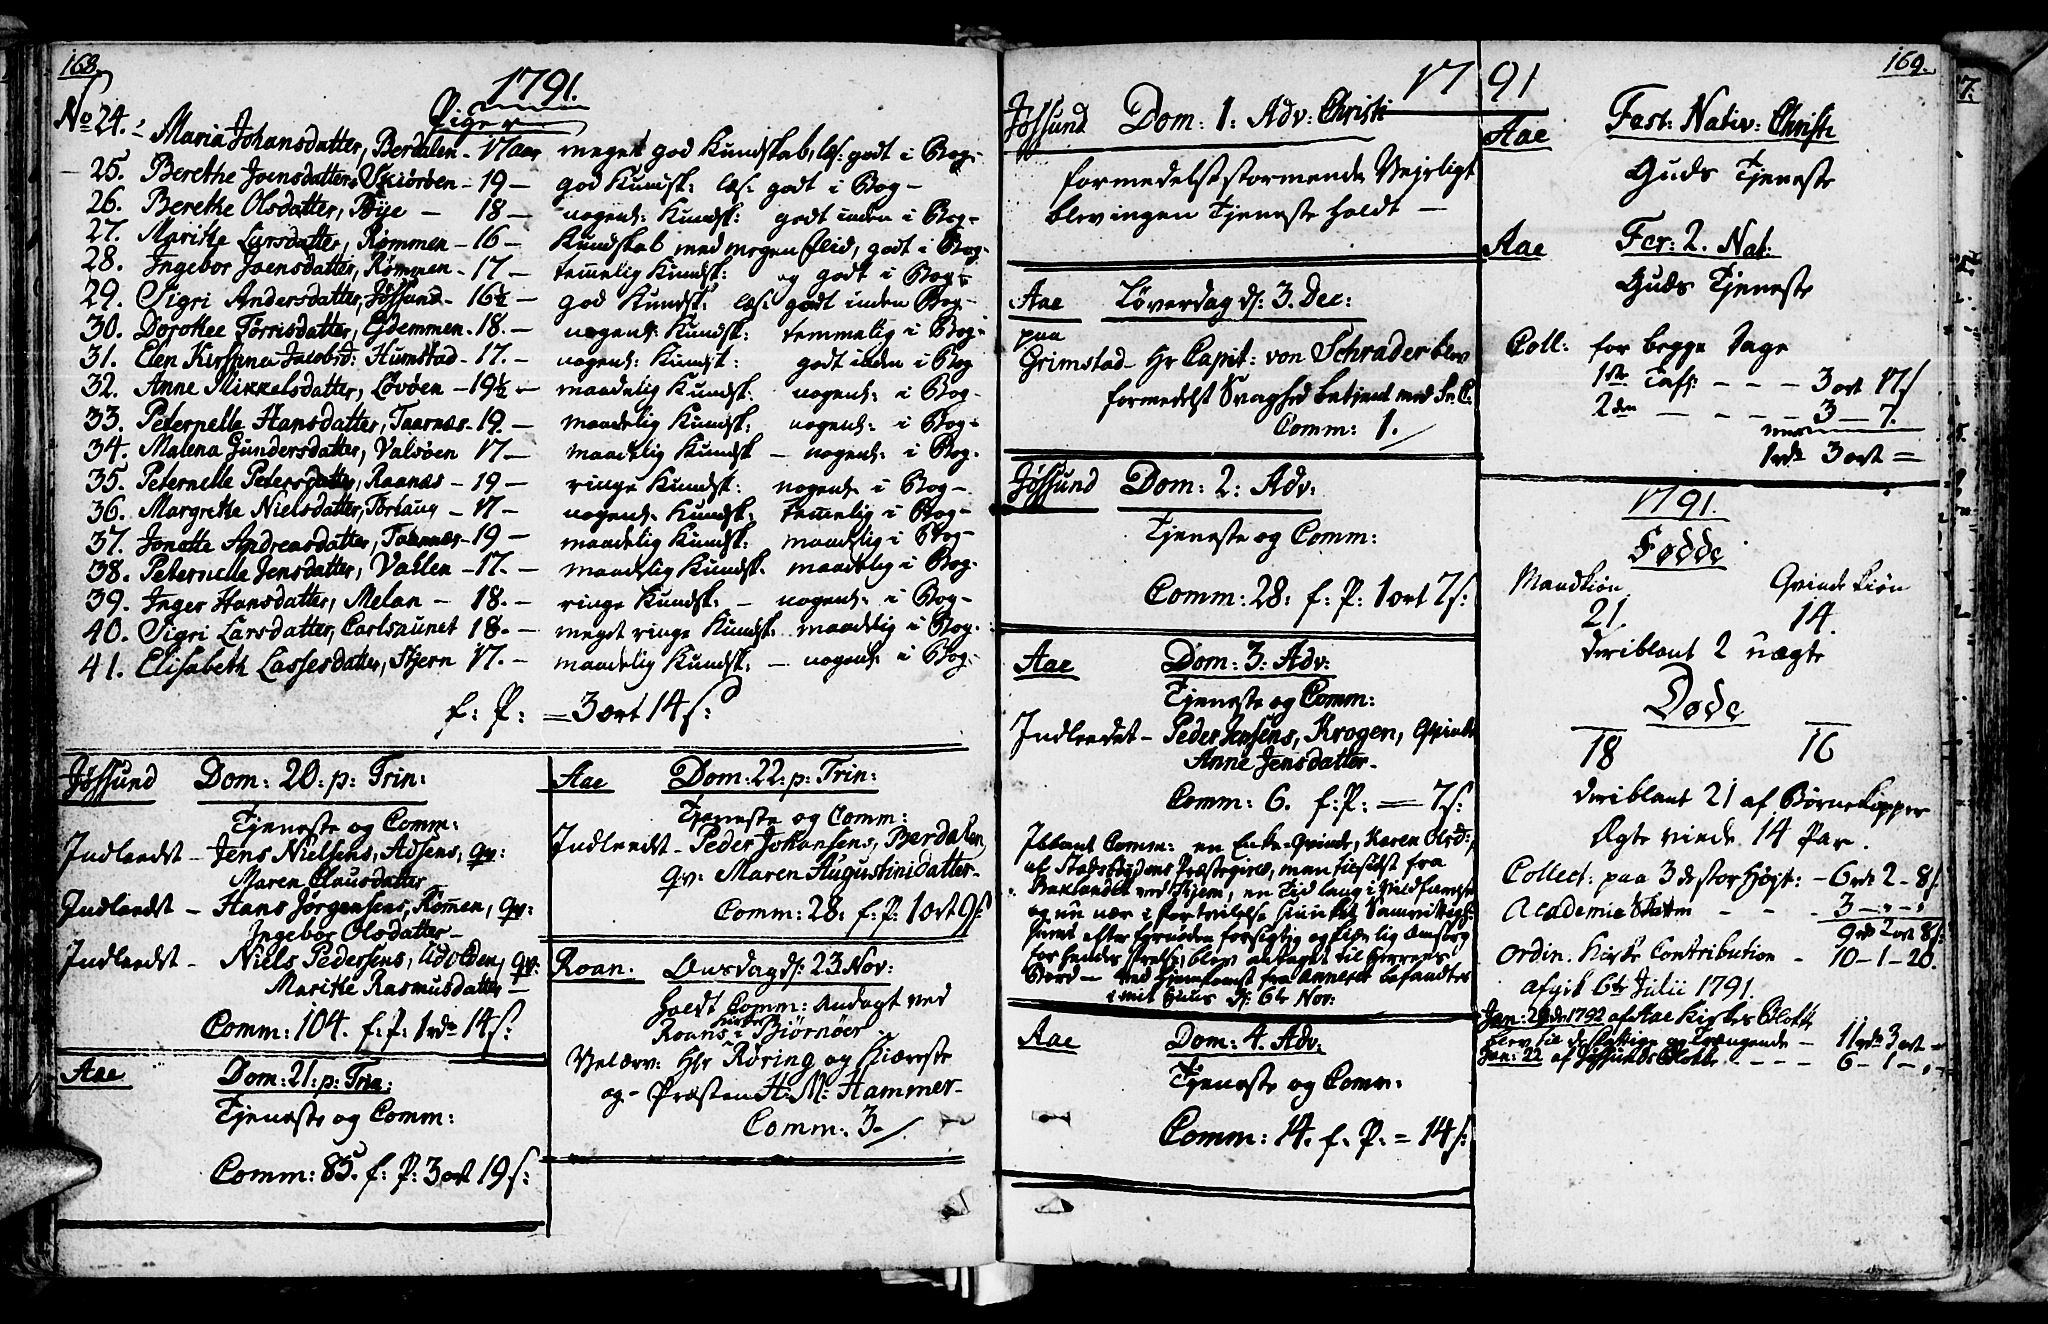 168.
1791.
Piger
No 24. Maria Johansdatter, Berdalen - 17 aar meget god Kundskab, læs: godt i Bog:
25. Berethe Joensdatter, Skiöröen - 19 - god Kundsk: læs: godt i Bog -
26. Berethe Olsdatter, Bye - 18 - nogenl: Kundsk: godt inden i Bog -
27. Marithe Larsdatter, Rømmen - 16 - Kundskab med megen flid, godt i Bog -
28. Ingebor Joensdatter, Rømmen - 17 - temelig Kundsk: og godt i Bog -
29. Sigri Andersdatter, Jøssund - 16½ - god Kundsk: læs: godt inden Bog -
30. Dorothee Torrisdatter, Gjdemmen - 18. - nogenl: Kundsk: temmelig i Bog -
31. Elen Kirstina Jacobsd: Humstad - 17. - nogenl: Kundsk: godt inden i Bog
32. Anne Mikkelsdatter, Løvøen - 19½ - maadelig Kundsk: nogenl: i Bog -
33. Peternelle Hansdatter, Taarnæs - 19. - maadelig Kundsk: nogenl: i Bog -
34. Malena Gundersdatter, Valsøen 17 - maadelig Kundsk - nogenl: i Bog.
35. Peternelle Petersdatter, Raanæs - 19 - ringe Kundsk: nogenl: i Bog -
36. Margrethe Nielsdatter, Torhaug - 17 - nogenl: Kundsk: temelig i Bog -
37. Jonette Andreasdatter, Taarnæs - 19 - maadelig Kundsk: maadelig i Bog -
38. Peternelle Jensdatter, Vallen - 17. - maadelig Kundsk: maadelig i Bog.
39. Inger Hansdatter, Melan - 18. - ringe Kundsk: - nogenl: i Bog -
40. Sigri Larsdatter, Carlsaunet 18. - meget ringe Kundsk: maadelig i Bog.
41. Elisabeth Lassesdatter, Stjern 17. - maadelig Kundsk: - nogenl: i Bog -
f: P: = 3 ort 14 s:
Jøssund Dom: 20: p: Trin:
Tjeneste og Comm:
Indleedt - Jens Nielsens, Adsens, qv:
Maren Clausdatter
Indleedt - Hans Jørgensens, Rømen, qv:
Ingebor Olsdatter -
Indleedt - Niels Pedersens, Udvolden, qv:
Marithe Rasmusdatter -
Comm: 104. f: P: 1 rdr 14 s:
Aae Dom: 21: p: Trin:
Tjeneste og Comm:
Comm: 85. f: P: 3 ort 19 s:
Aae Dom: 22: p: Trin:
Tjeneste og Comm:
Indleedt - Peder Johansens, Berdalen,
qv: Maren Augustinidatter -
Comm: 28: f: P: 1 ort 9 s:
Roan. Onsdag d: 23 Nov:
holdt Comm: Andagt ved
Roans Kirke i Bjørnöer
Velærv: Hr Röring og Kiæreste
og - Præsten H: M: Hammer -
Comm: 3 -
1791
169.
Jøssund Dom: 1: Adv: Christi
formedelst stormende Vejrligt
blev ingen Tjeneste holdt -
Aae Löverdag d: 3. Dec:
paa
Grimstad - Hr Capit: von Schrader blev
formedelst Svaghed betjent med Sr: C.
Comm: 1.
Jøssund Dom: 2: Adv:
Tjeneste og Comm:
Comm: 28: f: P: 1 ort 7 s:
Aae Dom: 3: Adv:
Tjeneste og Comm:
Indleedet - Peder Jensens, Krogen, Qvinde
Anne Jensdatter -
Comm: 6. f: P: = 7 s:
Iblant Comm: en Enke-Qvinde, Karen Olsd:,
af Stadsbÿdens Præstegield, man
en Tid lang i
og nu nær i fortvilelse
forsigtig og
for hendes blev antaget til Herrens
Bord -
i mit Huus d: 6te Nov:
Aae Dom: 4. Adv:
Tjeneste og Comm:
Comm: 14. f: P: = 14 s:
Aae Fest: Nativ: Christi
Guds Tjeneste
Aae Fer: 2. Nat:
Guds Tjeneste
Coll: for begge Dage
1ste Taft: - - - 3 ort 17 s
2den - - - - 3 - 7.
1 rdr 3 ort =
1791.
Fødde
Mandkiön Qvindekiön
21. 14.
deriblant 2 uægte
Døde
18 16
deriblant 21 af Børnekopper
Ægte viede 14 Par.
Collect: paa 3 de stor Høyt: - 6 rdr 2 - 8 s
Academie Skatm - - - 3 - " - "
9 rdr 2 ort 8 s:
Ordin: Kirke Contribution - 10 - 1 - 20.
afgik 6te Julii 1791.
Jan: 1792 af Aae Kirkes Blokke
blev til de fattige og Trængende - 11 rdr 3 ort -
Jan: 22 af Jøssunds Blokke - - - - 6 - 1 - " -